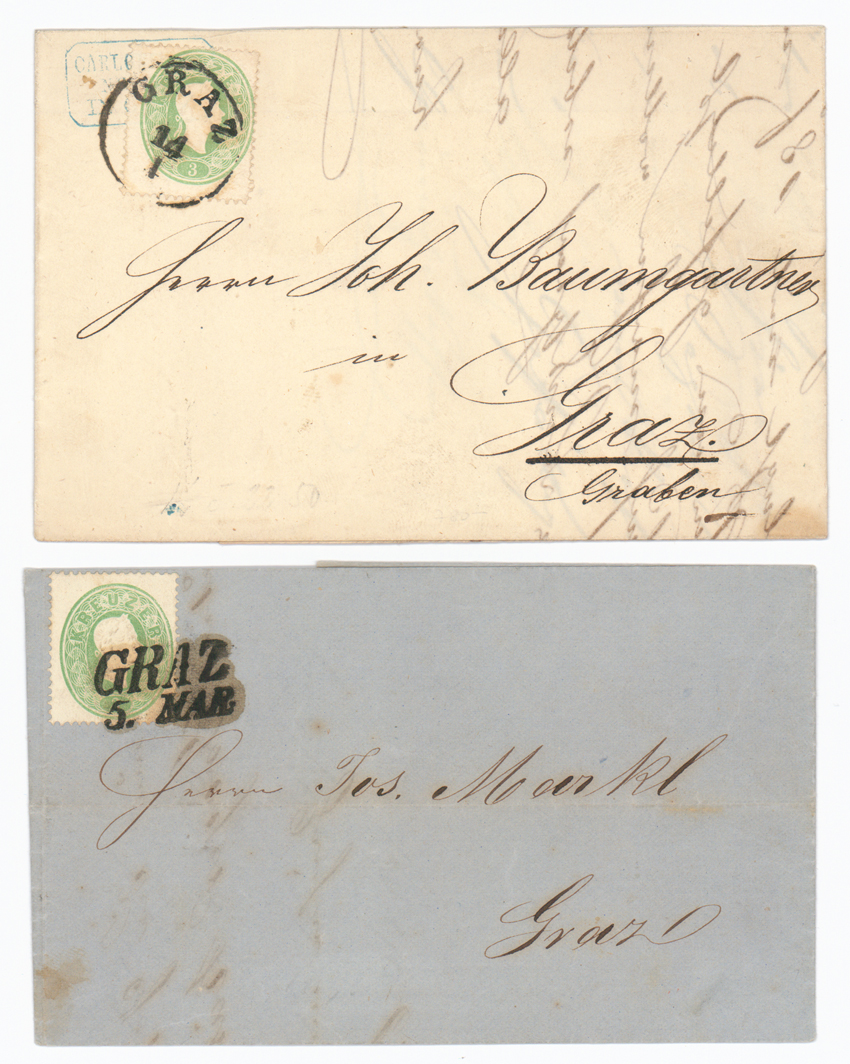 GRAZ
14
1
3
Herrn Joh. Baumgartner
in
Graz.
Graben
KREUZER
GRAZ
5. MAR
Herrn Jos. Markl
Graz